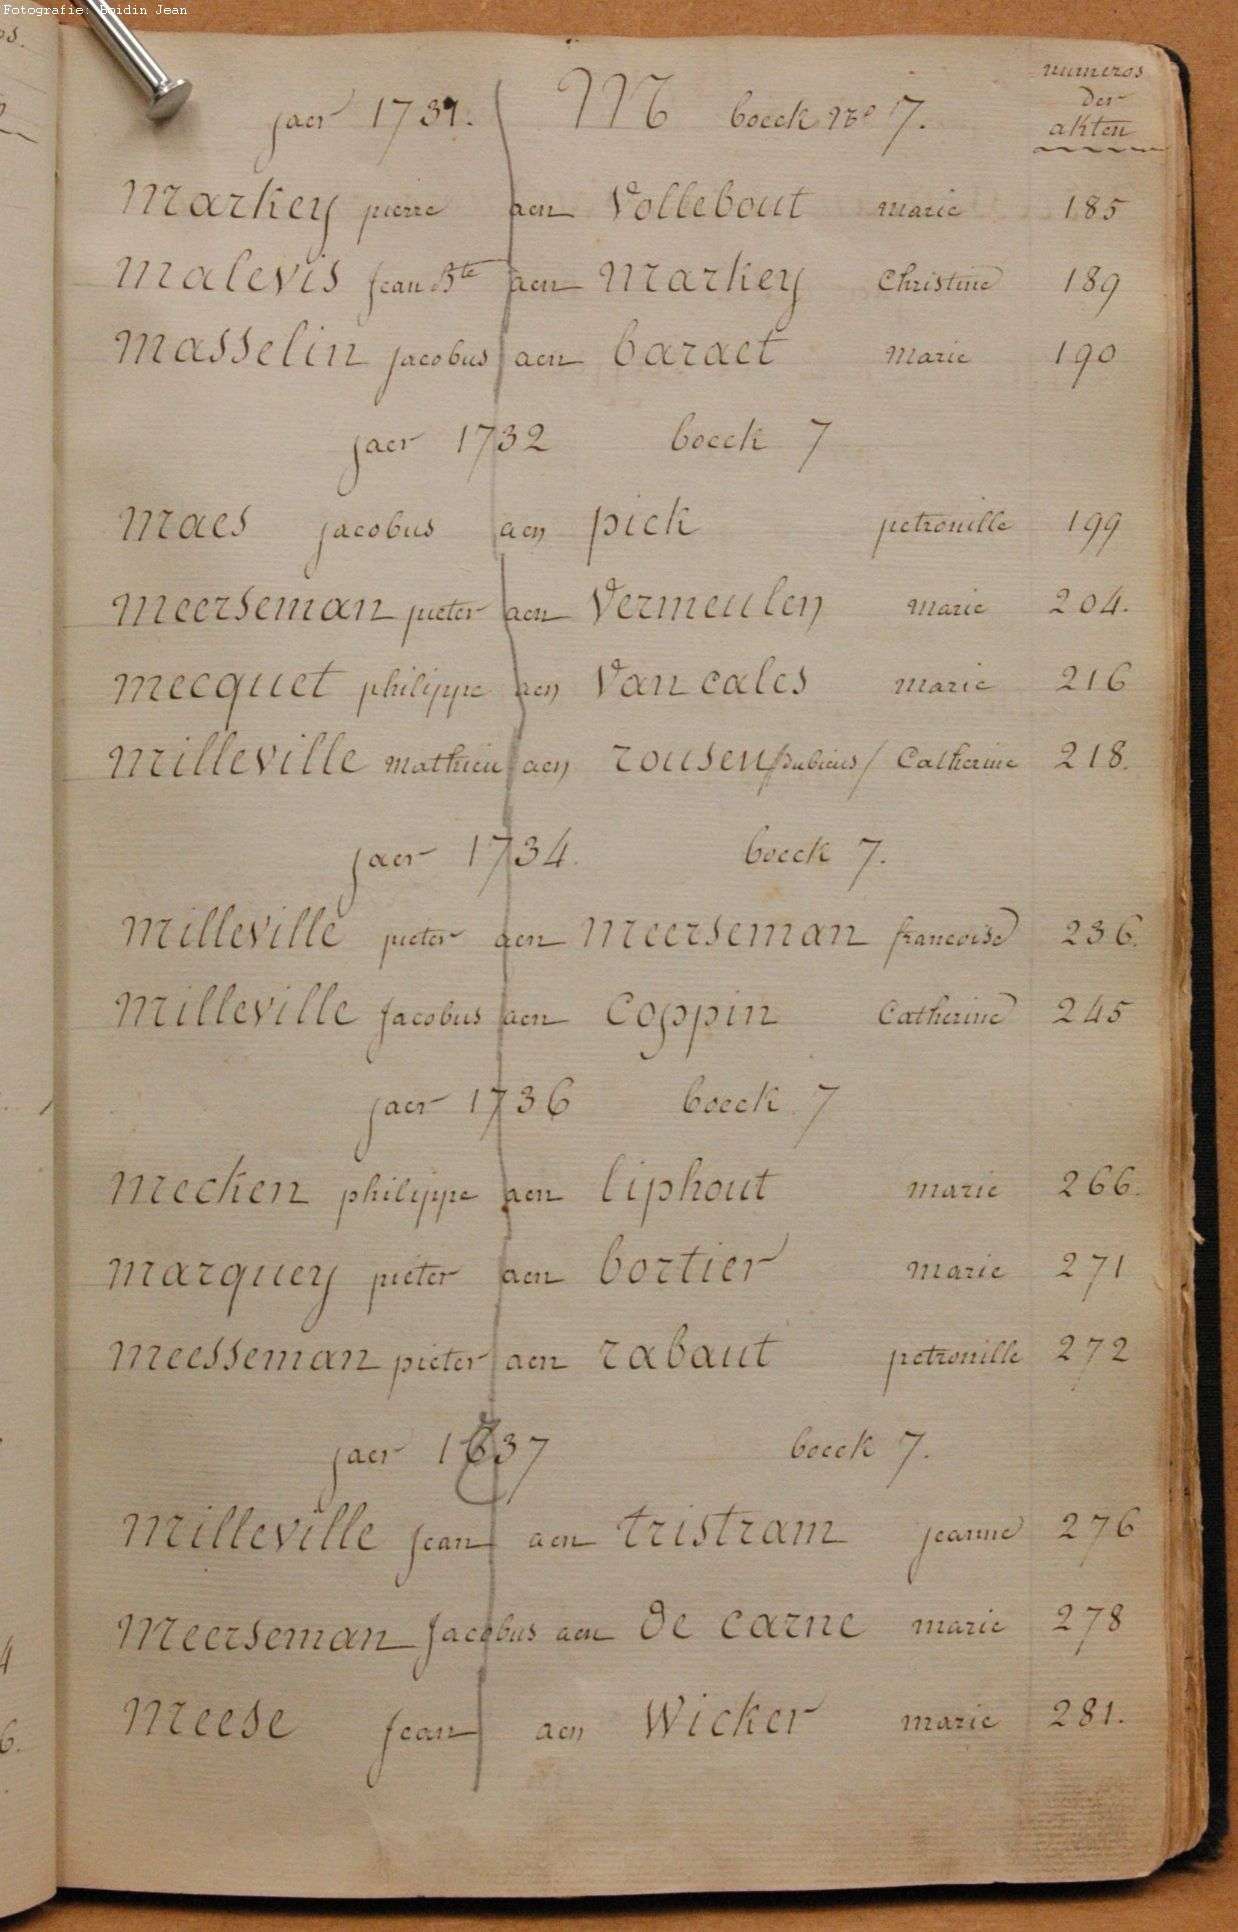 Fotografie: Boidin Jean
numeros
der
akten
jaer 1731. M boeck No 7.
Markey pierre aen Vollebout marie 185
Malevis Jean Bte aen Markey Christine 189
Masselin jacobus aen baraet marie 190
jaer 1732 boeck 7
Maes jacobus aen pick petronille 199
Meerseman pieter aen Vermeulen marie 204.
Mecquet philippe aen Van cales marie 216
Milleville mathieu aen rousen / Catherine 218.
jaer 1734. boeck 7.
Milleville pieter aen Meerseman francoise 236.
Milleville Jacobus aen Coppin Catherine 245
jaer 1736 boeck 7
Mecken philippe aen liphout marie 266.
Marquey pieter aen bortier marie 271
Meesseman pieter aen rabaut petronille 272
jaer 1737 boeck 7.
Milleville Jean aen tristram jeanne 276
Meerseman Jacobus aen de carne marie 278
Meese Jean aen Wicker marie 281.